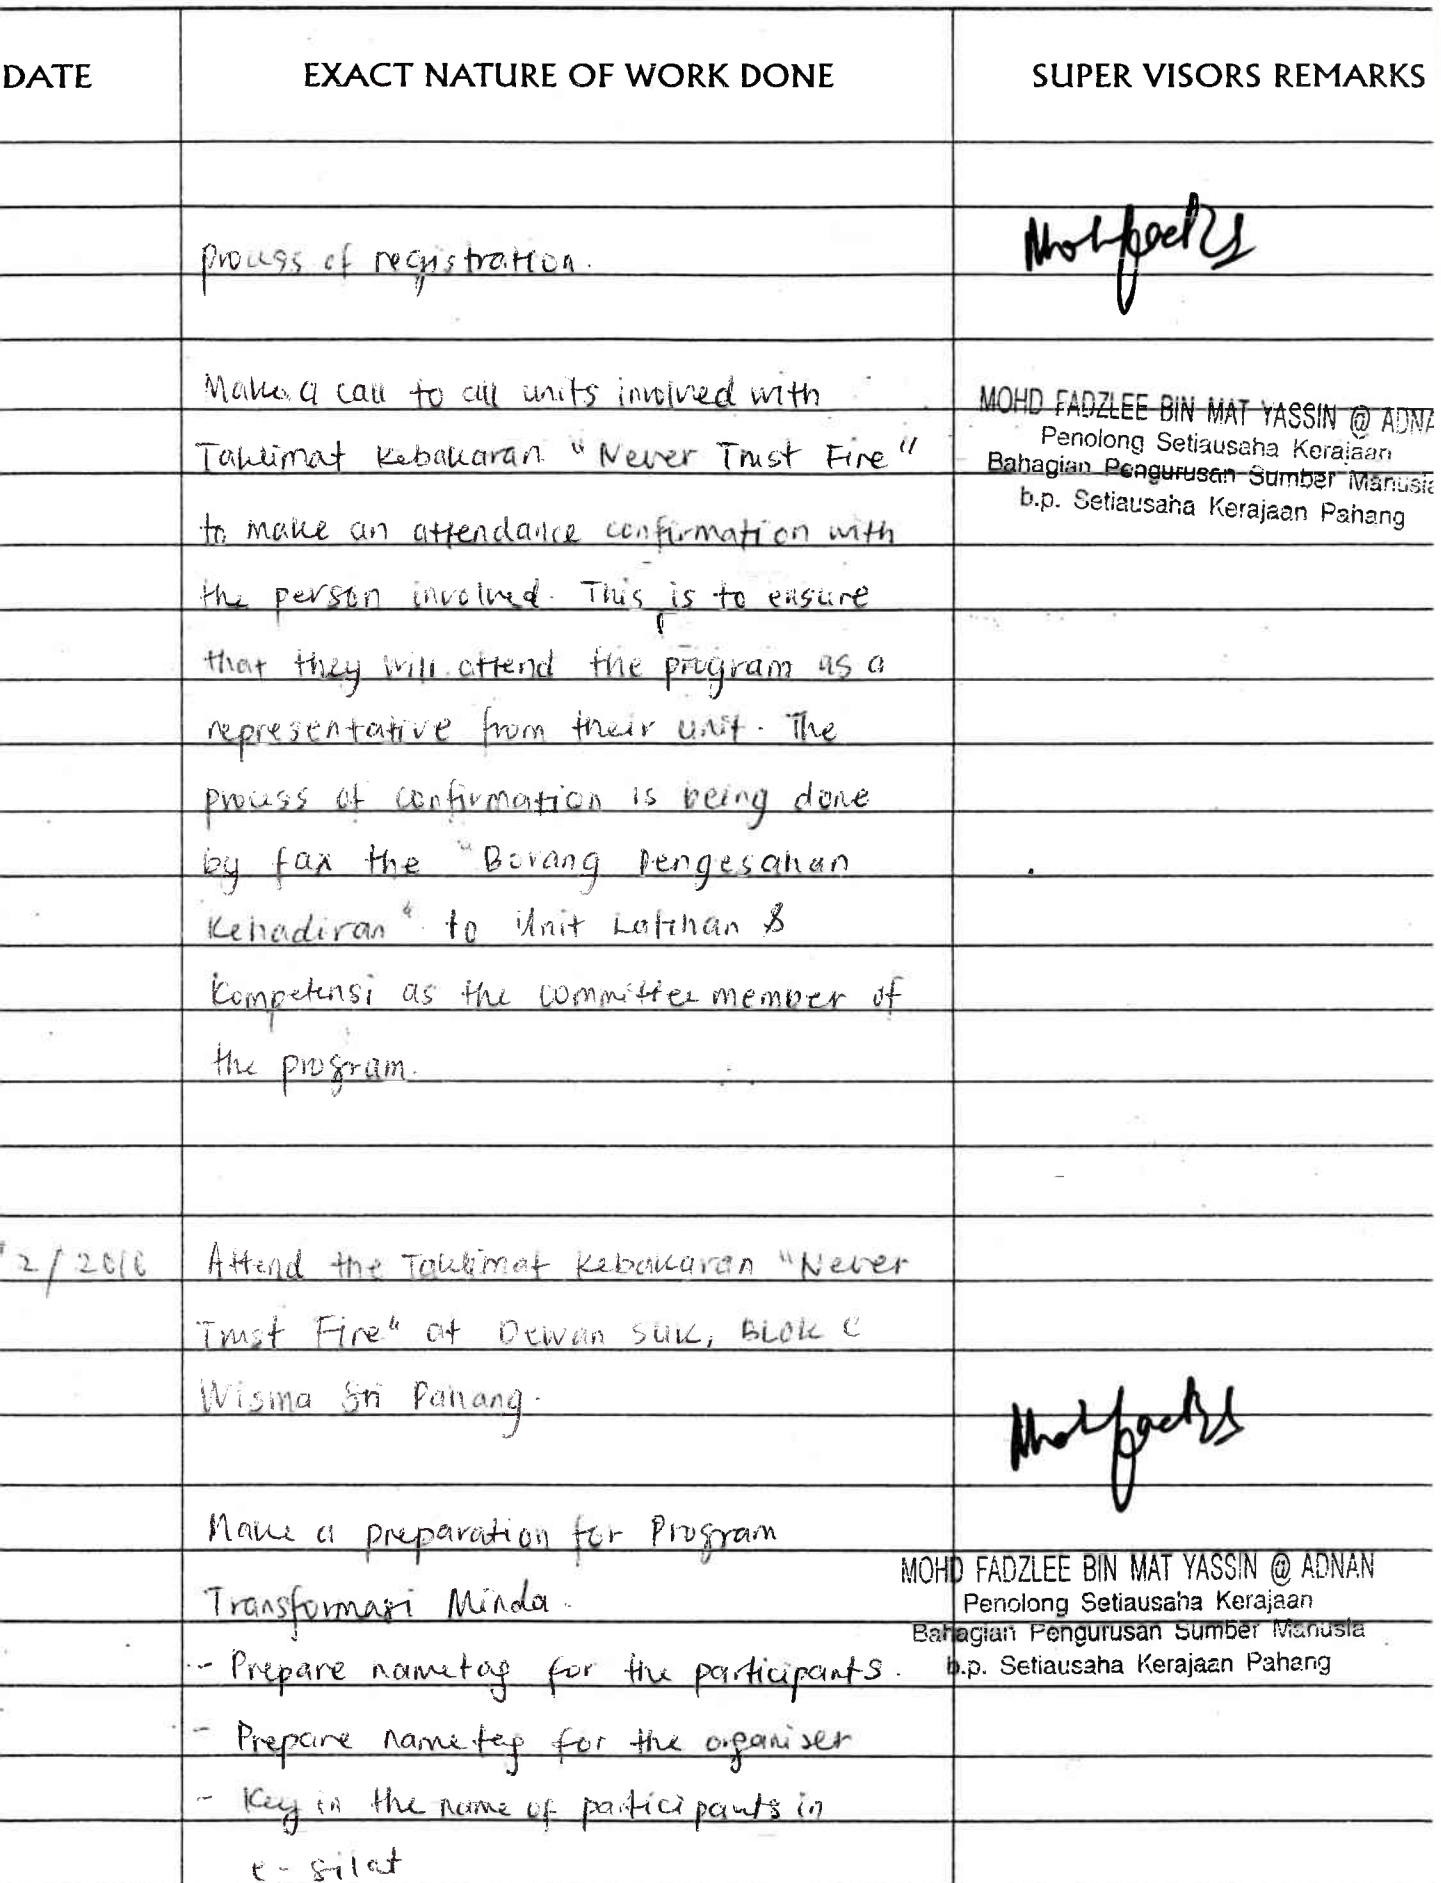 DATE EXACT NATURE OF WORK DONE SUPER VISORS REMARKS
process of registration.
Make a call to all units involved with
Taklimat Kebakaran "Never Trust Fire"
to make an attendance confirmation with
the person involved. This is to ensure
that they will attend the program as a
representative from their unit. The
process of confirmation is being done
by fax the "Borang Pengesahan
Kehadiran" to Unit Latihan &
Kompetensi as the committee member of
the program.
MOHD FADZLEE BIN MAT YASSIN @ ADNA
Penolong Setiausaha Kerajaan
Bahagian Pengurusan Sumber Manusia
b.p. Setiausaha Kerajaan Pahang
2/2016 Attend the Taklimat Kebakaran "Never
Trust Fire" at Dewan SUK, Blok C
Wisma Sri Pahang.
Make a preparation for Program
Transformasi Minda.
- Prepare nametag for the participants.
- Prepare nametag for the organiser
- Key in the name of participants in
e-silat
MOHD FADZLEE BIN MAT YASSIN @ ADNAN
Penolong Setiausaha Kerajaan
Bahagian Pengurusan Sumber Manusia
b.p. Setiausaha Kerajaan Pahang